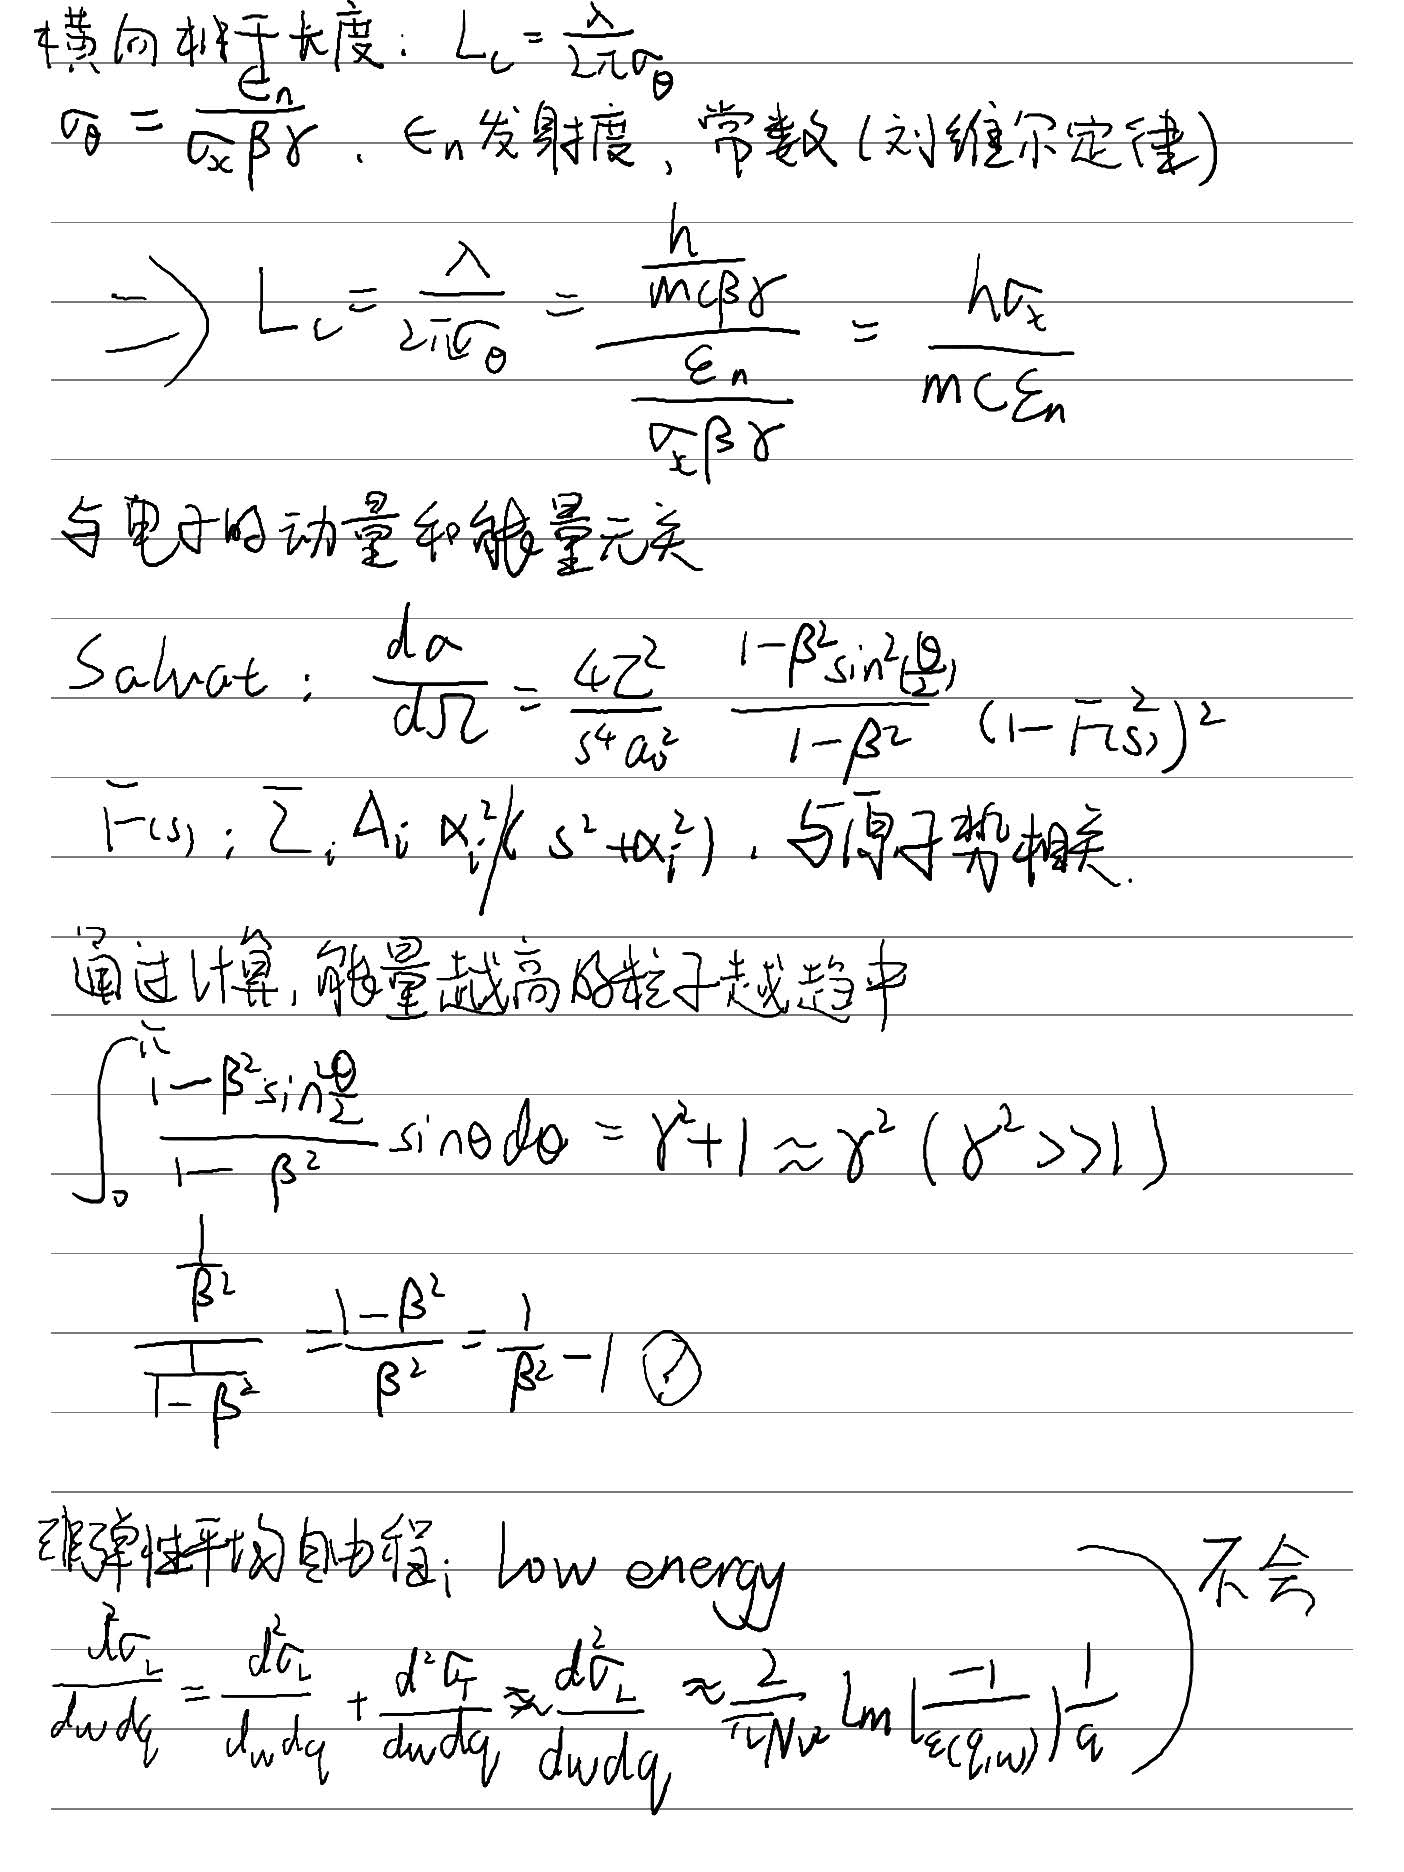 横向相干长度: L_c = λ/(2πσ_θ)
σ_θ = ϵ_n/(σ_x βγ), ϵ_n 发射度, 常数(刘维尔定律)
⇒ L_c = λ/(2πσ_θ) = (h/(mcβγ))/(ε_n/(σ_x βγ)) = hσ_x/(mcε_n)
与电子的动量和能量无关
Salvat: dσ/dΩ = 4Z²/(s⁴a₀²) (1-β²sin²(θ/2))/(1-β²) (1-F(s)²)²
F(s): Σ_i A_i α_i²/(s²+α_i²), 与原子势相关.
通过计算, 能量越高的粒子越趋中
∫₀^π (1-β²sin²θ/2)/(1-β²) sinθdθ = γ²+1 ≈ γ² (γ²>>1)
(1/β²)/(1/(1-β²)) = (1-β²)/β² = 1/β² - 1
非弹性平均自由程: Low energy
d²σ_L/dwdq = d²σ_L/dwdq + d²σ_T/dwdq ≈ d²σ_L/dwdq ≈ 2/(πNv²) Im(-1/ε(q,w)) 1/q
不会